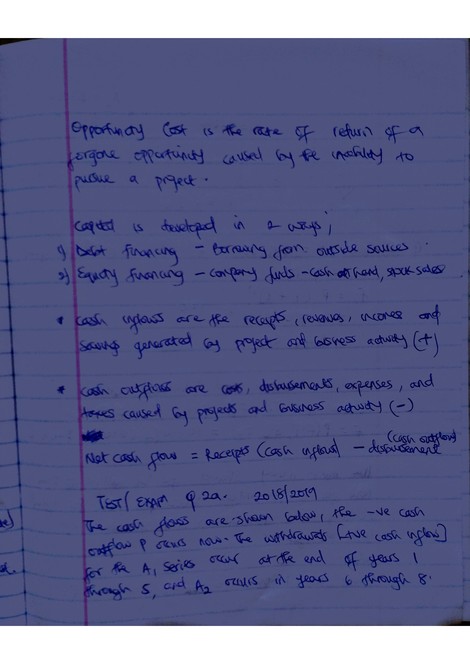 Opportunity Cost is the rate of return of a
forgone opportunity caused by the inability to
pursue a project.
Capital is developed in 2 ways;
1) Debt financing - Borrowing from outside sources.
2) Equity financing - company funds - cash off hand, stock sales
* cash inflows are the receipts, revenues, incomes and
savings generated by project and business activity (+)
* cash outflows are costs, disbursements, expenses, and
taxes caused by projects and business activity (-)
Net cash flow = Receipts (cash inflow) - disbursement (cash outflow)
TEST/ EXAM Q 2a. 2018/2019
The cash flows are shown below, the -ve cash
outflow P occurs now. The withdrawals [+ve cash inflow]
for the A1 series occur at the end of years 1
through 5, and A2 occurs in years 6 through 8.